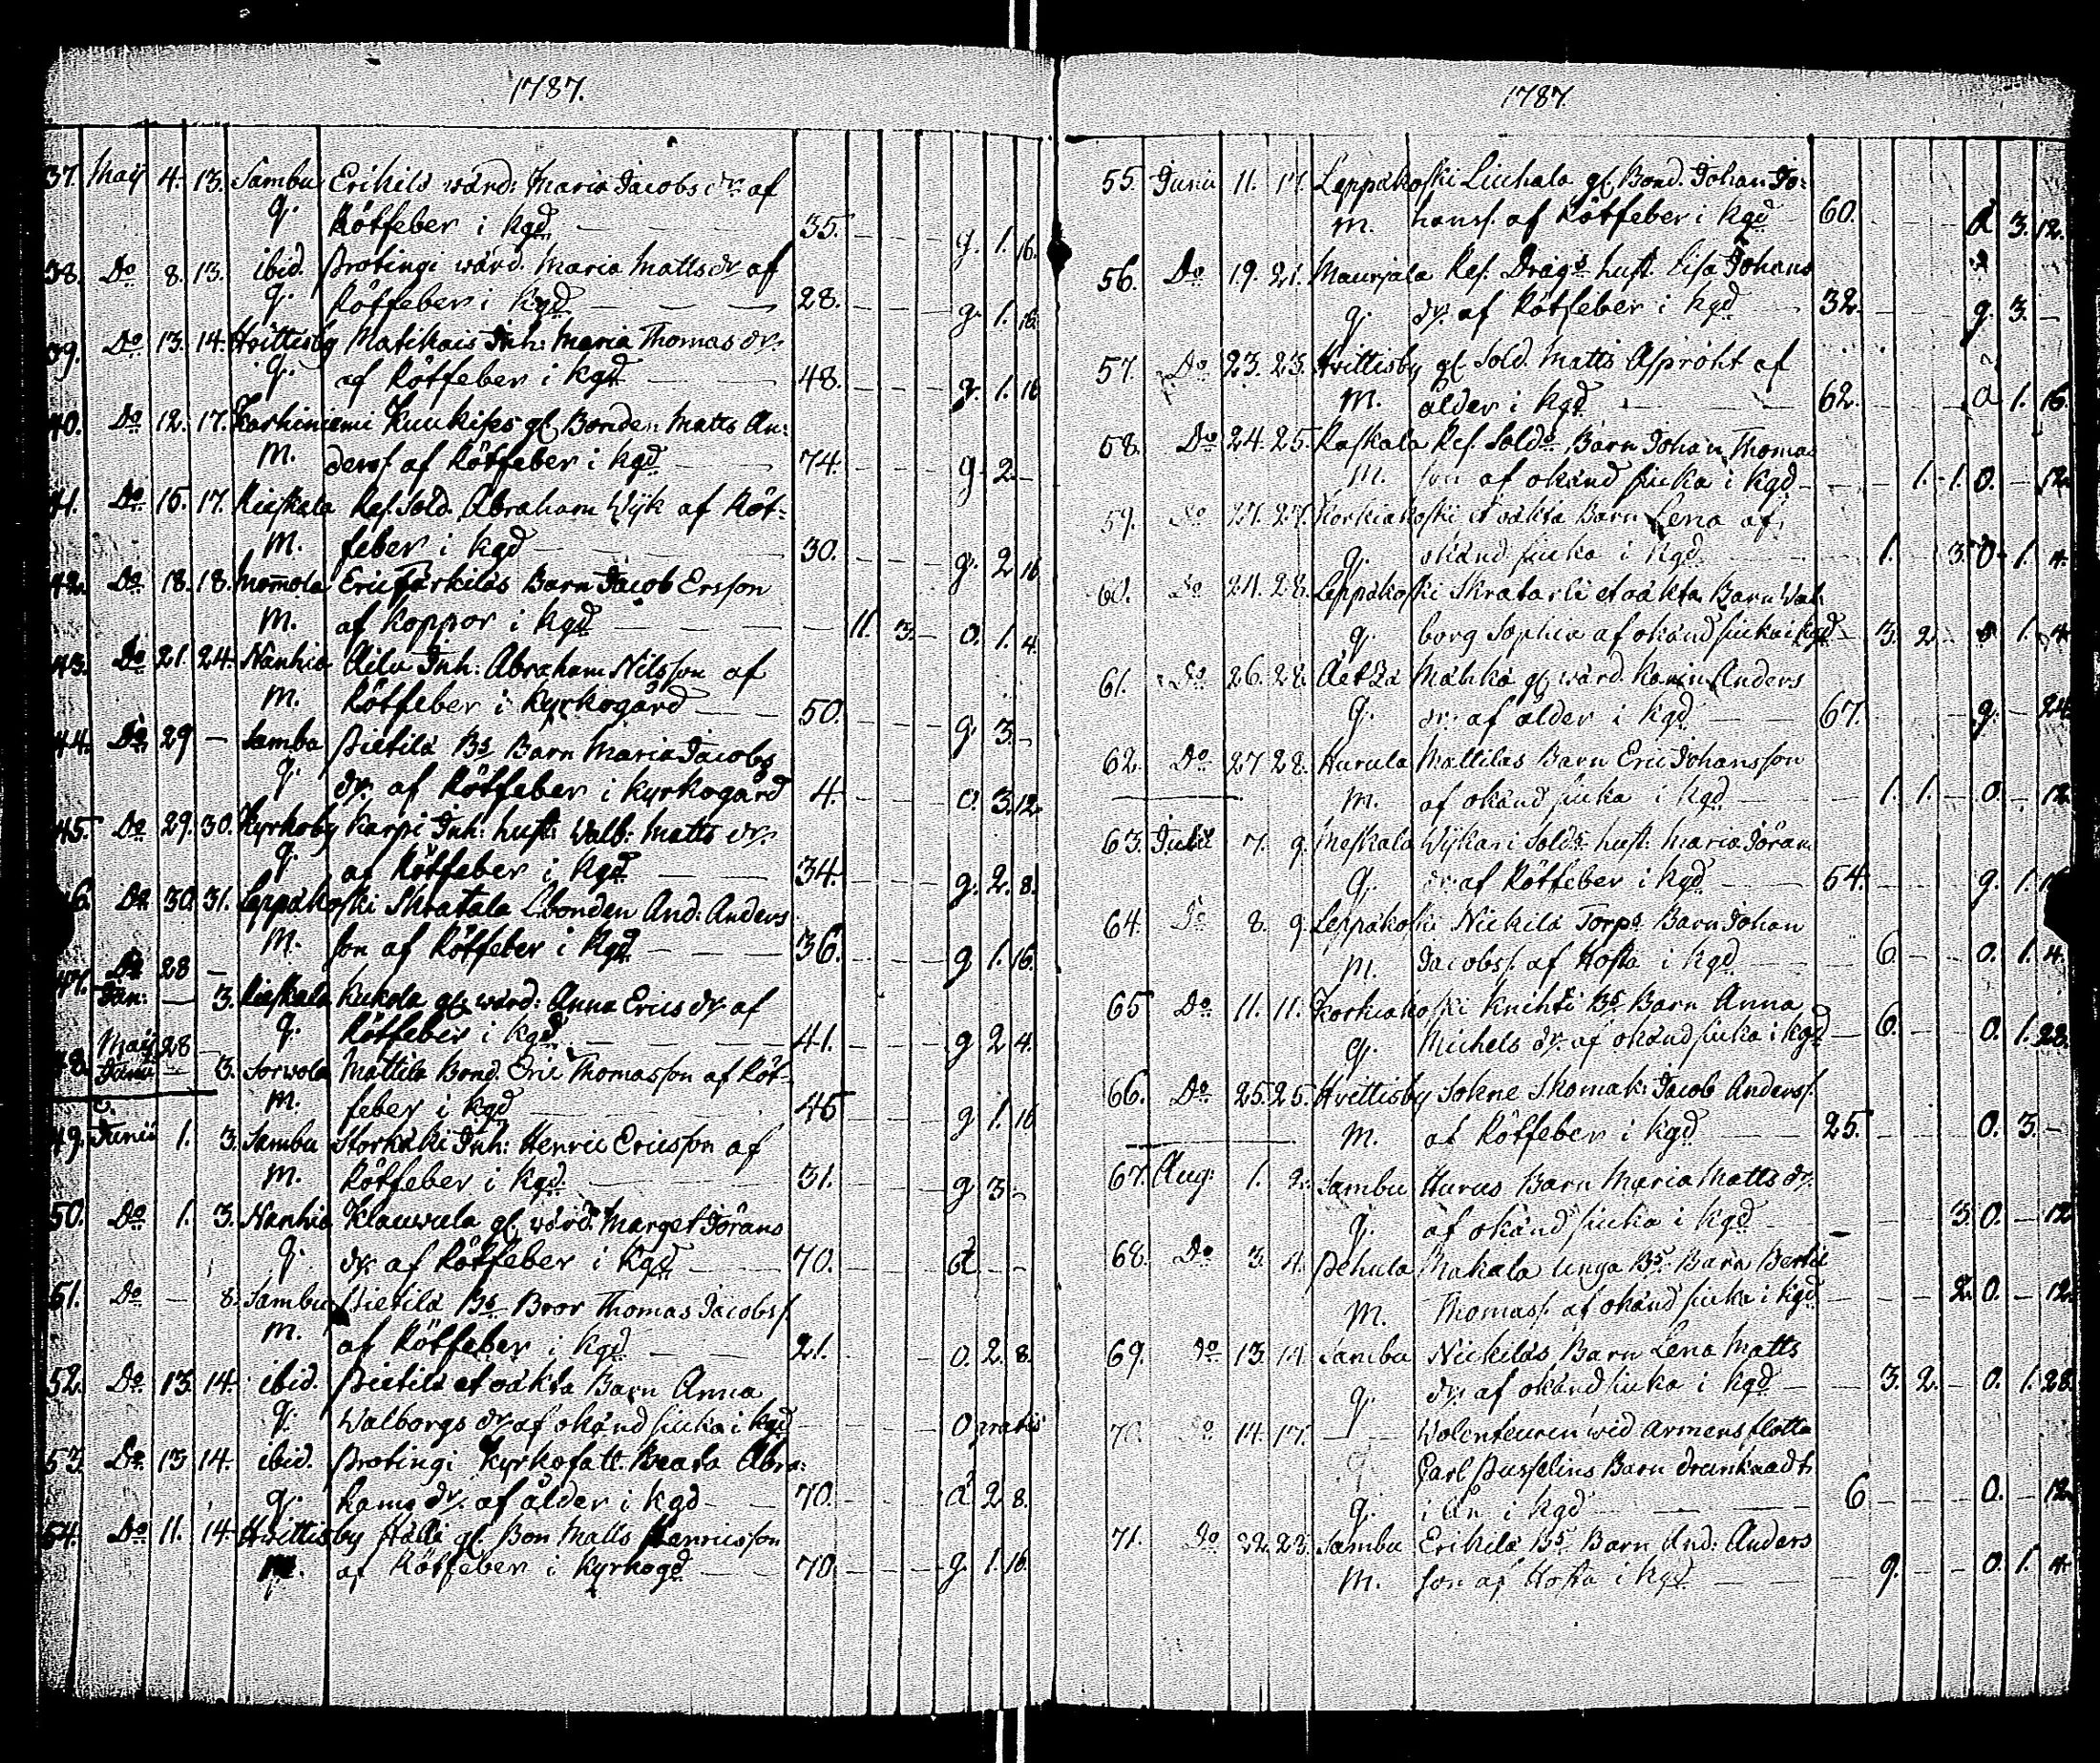 1787.
37. Maij 4. 13. Sambu Erikilä wärd: Maria Jacobs dr. af
q. Rötfeber i kgd 35. g. 1. 16.
38. Do 8. 13. ibid. Protingi wärd. Maria Matts dr af
q. Rötfeber i kgd 28. g. 1. 16.
39. Do 13. 14. Hvittisby Matikais Inh: Maria Thomas dr.
q. af Rötfeber i kgd 48. g. 1. 16
40. Do 12. 17. Karhiniemi gl. Bonden Matts An:
M. derss. af Rötfeber i kgd 74. g. 2. -
41. Do 15. 17. Rieskala Res. Sold. Abraham Wijk af Röt-
M. feber i kgd 30. g. 2 16
42. Do 18. 18. Mommola Eric Tärkiläs Barn Jacob Ersson
M. af koppor i kgd 11. 3. o. 1. 4.
43. Do 21. 24. Nanhia Äilu Inh: Abraham Nilsson af
M. Rötfeber i kyrkogård 50. g. 3. -
44. Do 29 - Sambu Pietilä Bs Barn Maria Jacobs
q. dr. af Rötfeber i kyrkogård 4. o. 3. 12.
45. Do 29. 30. Kyrkoby Karpi Inh: hust: Walb: Matts dr.
q. af Rötfeber i kgd 34. g. 2. 8.
46. Do 30. 31. Leppäkoski Skratala bonden And: Anders
M. son af Rötfeber i kgd 36. g. 1. 16.
47. Do 28 -
Jun: - 3. Rieskala Kukola gl. wärd: Anna Erics dr. af
q. Rötfeber i kgd 41. g 2 4.
Maij 28 -
48. Junii - 3. Sorwola Mattila Bond. Eric Thomasson af Röt-
M. feber i kgd 45 g 1. 16
49. Junii 1. 3. Sambu Storkäki Inh: Henric Ericsson af
M. Rötfeber i kgd. 31. g 3. -
50. Do 1. 3. Nanhia Klauwula gl. wärd. Marget Jörans
q. dr. af Rötfeber i kgd 70. - -
51. Do - 8. Sambu Pietilä Bs Bror Thomas Jacobss.
M. af Rötfeber i kgd 21. o. 2. 8.
52. Do 13. 14. ibid. Pietilä et oäkta Barn Anna
q. Walborgs dr. af okänd siuka i kgd o gratis
53. Do 13 14. ibid. Protingi Kyrkofatt. Beata Abra:
q. hams dr. af ålder i kgd 70. å 2 8.
54. Do 11. 14. Hvittisby Hälli gl. Bon Matts Henricsson
M. af Rötfeber i kyrkogd 70 g. 1. 16.
1787.
55. Junii 11. 17. Leppäkoski Liuhala gl. Bond. Johan Jo:
M. hanss. af Rötfeber i kgd 60. å 3. 12.
56. Do 19. 21. Maurjala Res. Drags hust. Lisa Johans
q. dr. af Rötfeber i kgd 32. g. 3. -
57. Do 23. 23. Hvittisby gl. Sold. Matts Aspröht af
M. ålder i kgd 62. å 1. 16.
58. Do 24. 25. Raskala Res. Solds Barn Johan Thomas
M. son af okänd siuka i kgd 1. 1. o. - 12.
59. Do 27. 27. Korkiakoski et oäkta Barn Lena af
q. okänd siuka i kgd 1. 3. o. 1. 4.
60. Do 24. 28. Leppäkoski et oäkta Barn Wal-
q. borg Sophia af okänd siuka i kgd 3. 2. o 1. 4
61. Do 26. 28. Mähkä gl. wärd. Karin Anders
q. dr. af ålder i kgd 67. g. - 24.
62. Do 27 28. Hurula Mattilas Barn Eric Johansson
M. af okänd siuka i kgd 1. 1. o. - 12.
63. Julii 7. 9. Maskala Wijkari Solds hust. Maria Jöran
q. dr. af Rötfeber i kgd 54. g. 1.
64. Do 8. 9. Leppäkoski Nickilä Torps Barn Johan
M. Jacobss. af Hosta i kgd 6. o. 1. 4.
65 Do 11. 11. Korkiakoski Knihti Bs Barn Anna
q. Michels dr. af okänd siuka i kgd 6. o. 1. 28.
66. Do 25. 25. Hvittisby Sokne Skomak: Jacob Anderss.
M. af Rötfeber i kgd 25. o. 3. -
67. Aug: 1. 2. Sambu Hurus Barn Maria Matts dr.
q. af okänd siuka i kgd 3. o. - 12
68. Do 3. 4. Pehula Makala unga Bs Barn Bertil
M. Thomass. af okänd siuka i kgd 2. o. - 12.
69. Do 13 14 Sambu Nickiläs Barn Lena Matts
q. dr. af okänd siuka i kgd 3. 2. o. 1. 28.
70. Do 14. 17. wid Armens flotta
Carl Barn drunknadt
q. i Ån i kgd 6 o. - 12.
71. Do 22. 23. Sambu Erikilä Bs. Barn And: Anders
M. son af Hosta i kgd 9. o. 1. 4